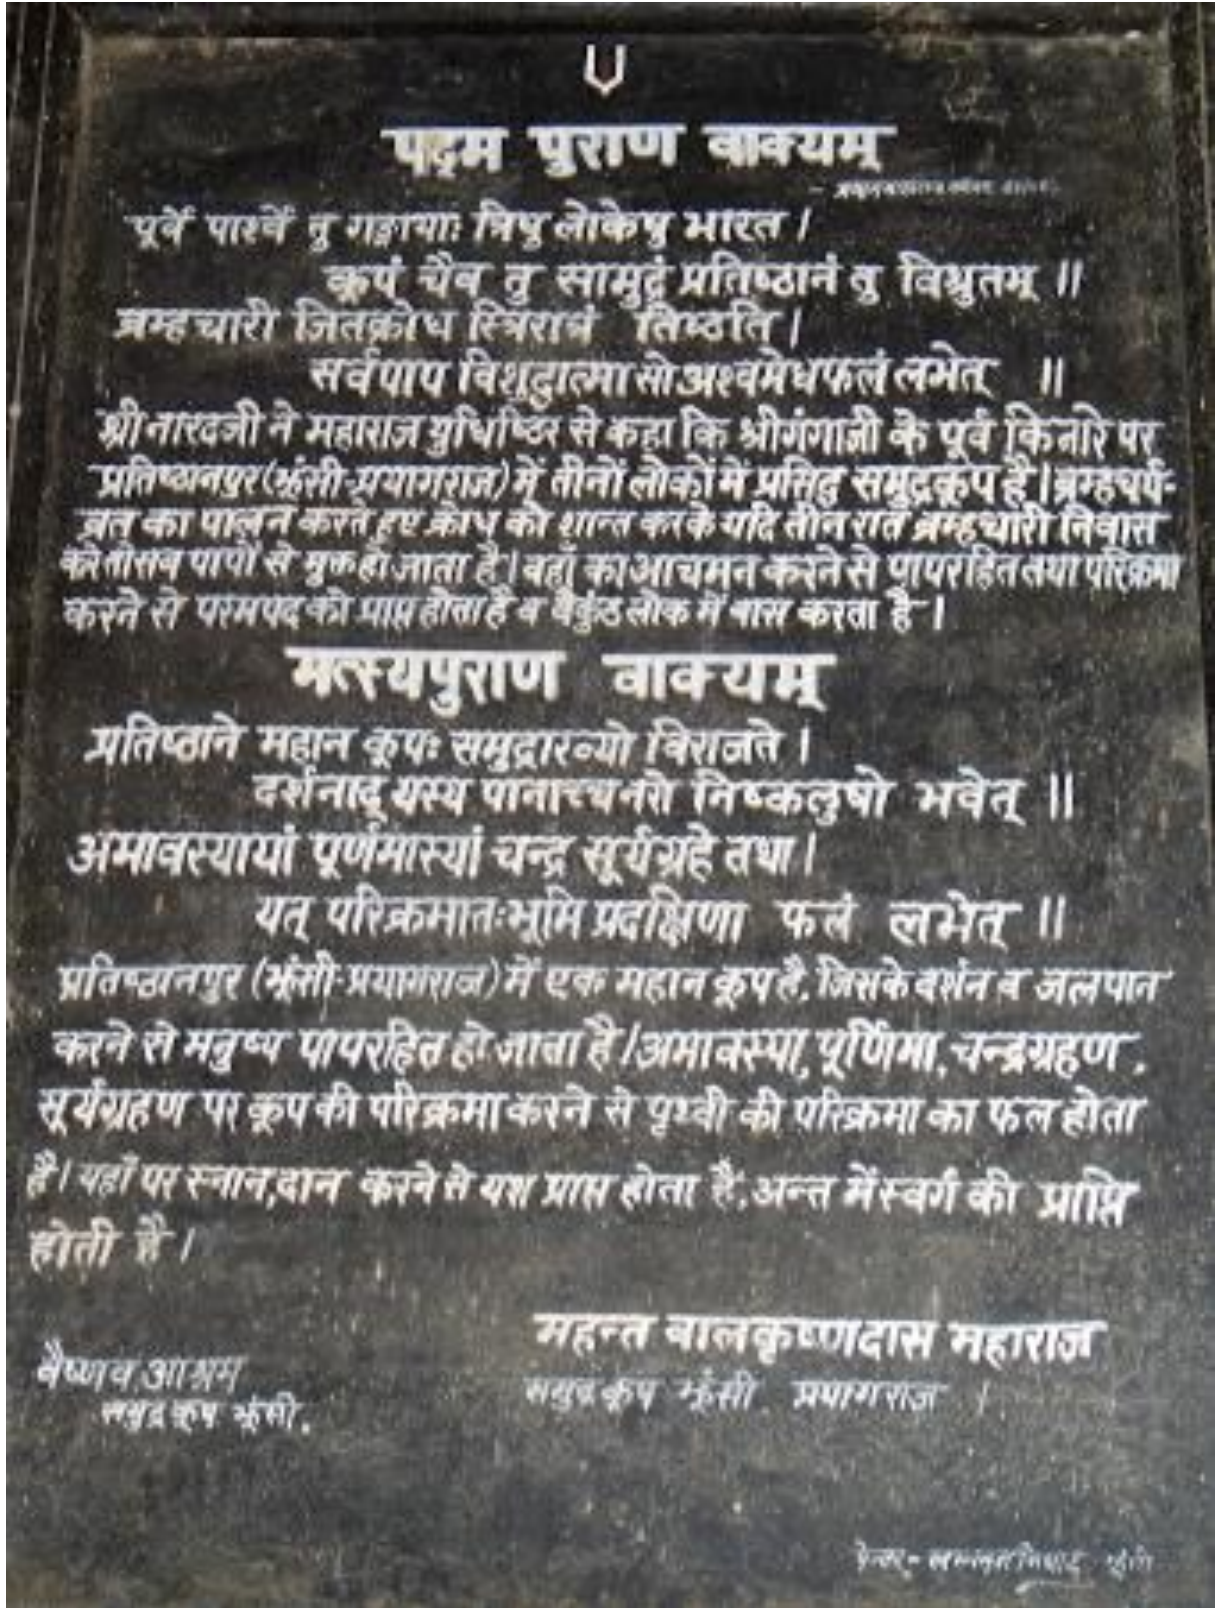 पद्म पुराण वाक्यम्
पूर्वे पार्श्वे तु गङ्गायाः त्रिषु लोकेषु भारत ।
कूपं चैव तु सामुद्रं प्रतिष्ठानं तु विश्रुतम् ॥
ब्रम्हचारी जितक्रोध स्त्रिरात्रं तिष्ठति ।
सर्वपाप विशुद्धात्मा सो अश्वमेधफलं लभेत् ॥
श्री नारदजी ने महाराज युधिष्ठिर से कहा कि श्रीगंगाजी के पूर्व किनारे पर
प्रतिष्ठानपुर (झूंसी-प्रयागराज) में तीनों लोकों में प्रसिद्ध समुद्रकूप है। ब्रम्हचर्य-
व्रत का पालन करते हुए क्रोध को शान्त करके यदि तीन रात ब्रम्हचारी निवास
करे तो सब पापों से मुक्त हो जाता है। वहाँ का आचमन करने से पापरहित तथा परिक्रमा
करने से परमपद को प्राप्त होता है व वैकुंठ लोक में वास करता है ।
मत्स्यपुराण वाक्यम्
प्रतिष्ठाने महान कूपः समुद्राख्यो विराजते ।
दर्शनाद् यस्य पानाच्चनरो निष्कलुषो भवेत् ॥
अमावस्यायां पूर्णमास्यां चन्द्र सूर्यग्रहे तथा।
यत् परिक्रमातःभूमि प्रदक्षिणा फलं लभेत् ॥
प्रतिष्ठानपुर (झूंसी-प्रयागराज) में एक महान कूप है, जिसके दर्शन व जलपान
करने से मनुष्य पापरहित हो जाता है। अमावस्या, पूर्णिमा, चन्द्रग्रहण,
सूर्यग्रहण पर कूप की परिक्रमा करने से पृथ्वी की परिक्रमा का फल होता
है। यहाँ पर स्नान,दान करने से यश प्राप्त होता है, अन्त में स्वर्ग की प्राप्ति
होती है ।
महन्त बालकृष्णदास महाराज
समुद्र कूप झूंसी प्रयागराज ।
वैष्णव आश्रम
समुद्र कूप झूंसी.
पेन्टर-